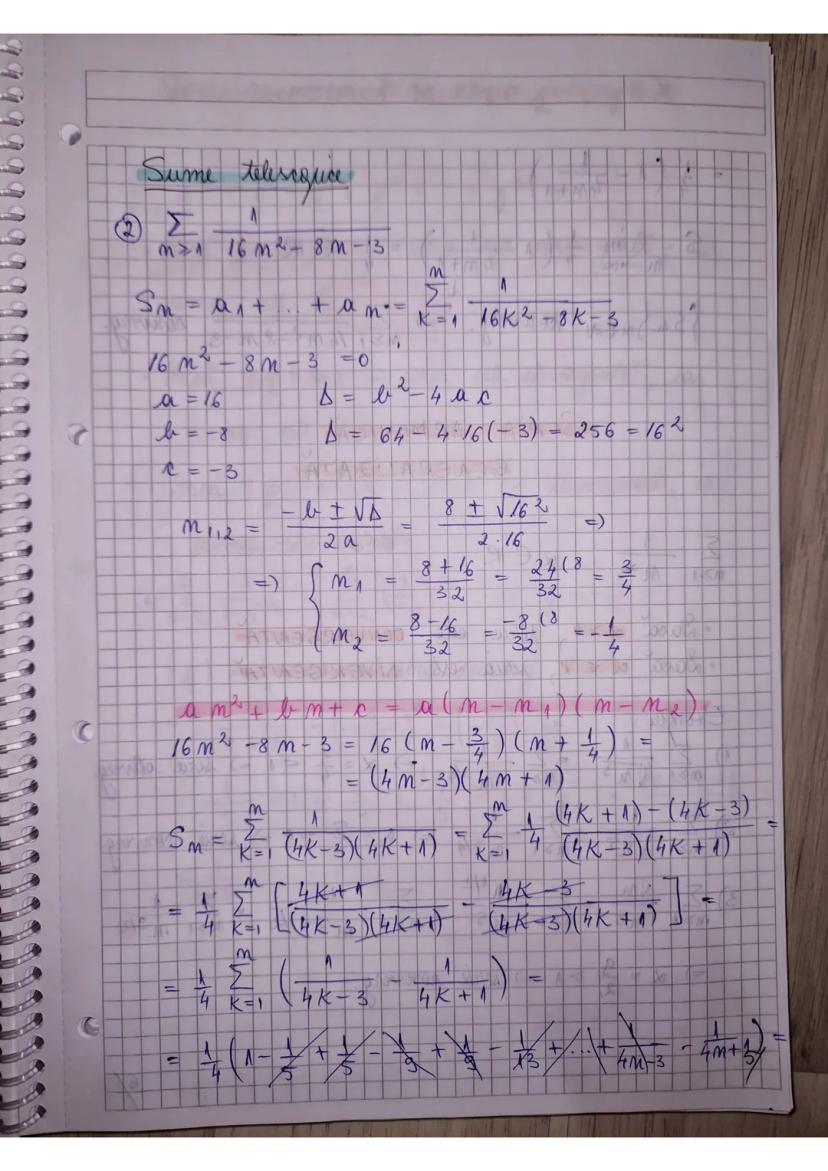 Sume telescopice
② ∑_{n≥1} 1/(16n² - 8n - 3)
Sn = a1 + ... + an = ∑_{K=1}^{n} 1/(16K² - 8K - 3)
16n² - 8n - 3 = 0
a = 16 Δ = b² - 4ac
b = -8 Δ = 64 - 4·16(-3) = 256 = 16²
c = -3
n1,2 = (-b ± √Δ)/(2a) = (8 ± √16²)/(2·16) =>
=> { n1 = (8+16)/32 = 24/32 (8 = 3/4
n2 = (8-16)/32 = -8/32 (8 = -1/4
an² + bn + c = a(n - n1)(n - n2)
16n² - 8n - 3 = 16(n - 3/4)(n + 1/4) =
= (4n-3)(4n+1)
Sn = ∑_{K=1}^{n} 1/((4K-3)(4K+1)) = ∑_{K=1}^{n} 1/4 ((4K+1) - (4K-3))/((4K-3)(4K+1)) =
= 1/4 ∑_{K=1}^{n} [(4K+1)/((4K-3)(4K+1)) - (4K-3)/((4K-3)(4K+1))] =
= 1/4 ∑_{K=1}^{n} (1/(4K-3) - 1/(4K+1)) =
= 1/4 (1 - 1/5 + 1/5 - 1/9 + 1/9 - 1/13 + ... + 1/(4n-3) - 1/(4n+1)) =